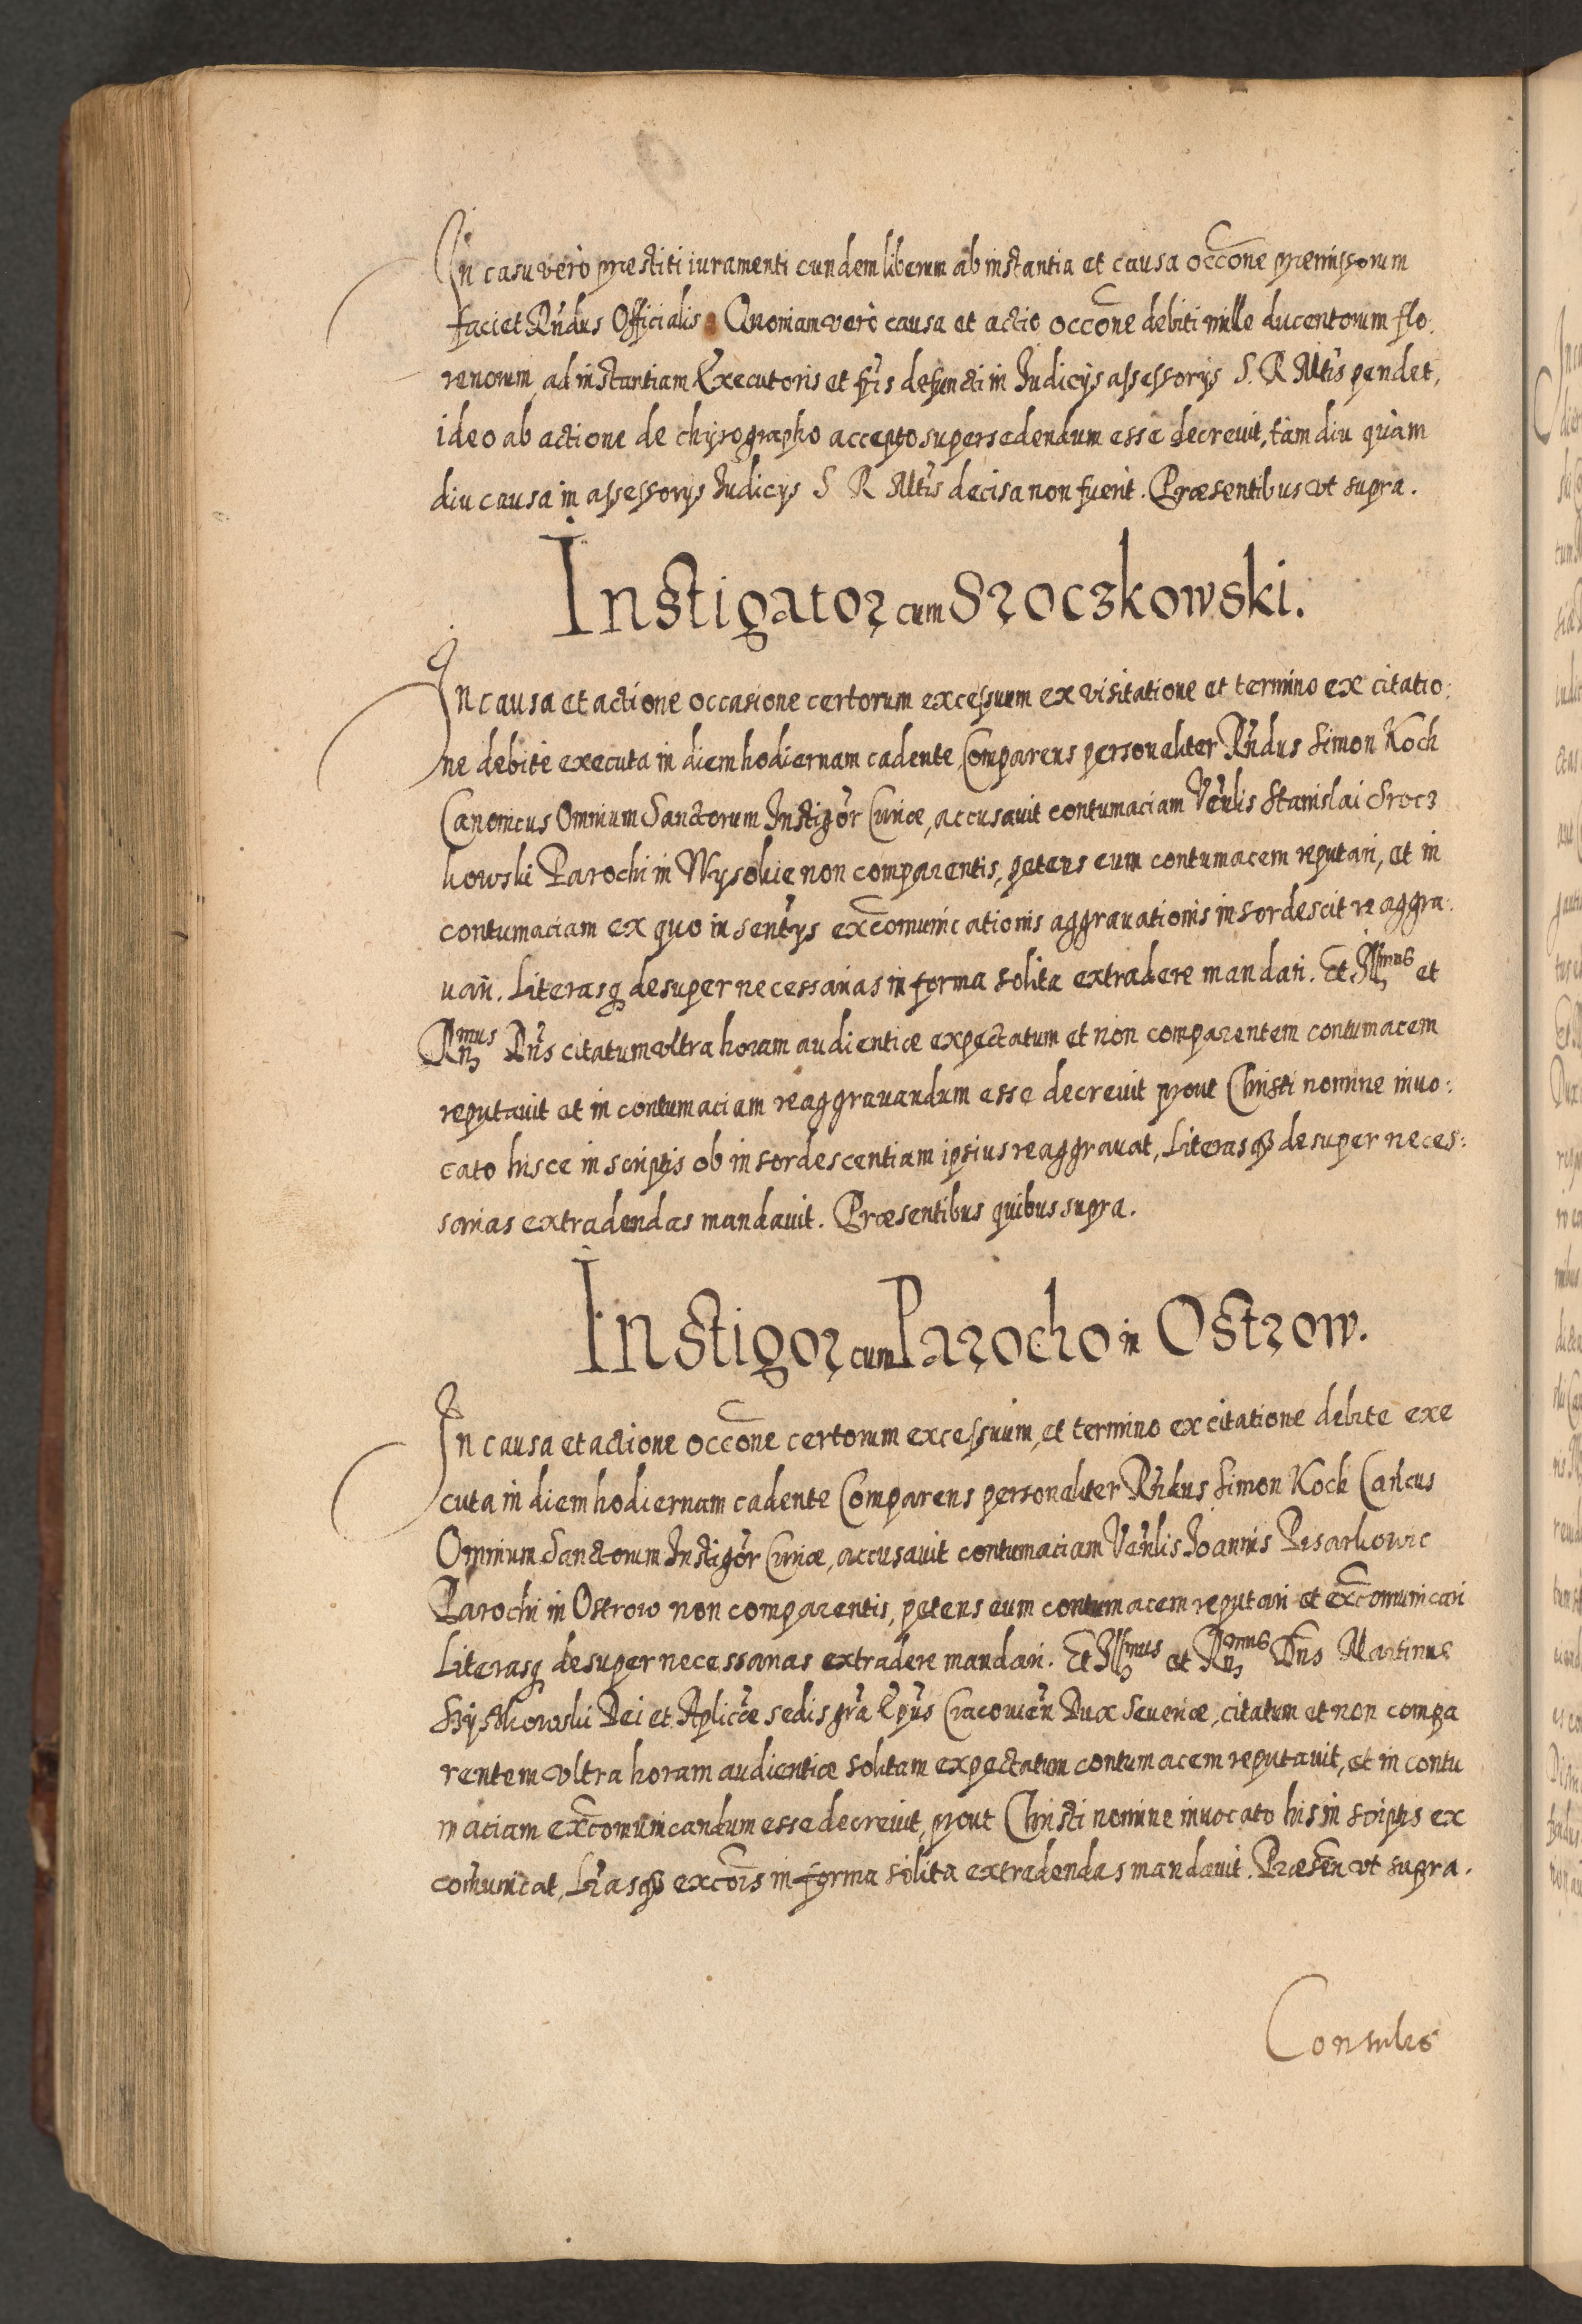 In casu verò præstiti iuramenti eundem liberum ab instantia et causa occõne præmissorum
faciet Rñdus Officialis. Quoniam verò causa et actio occõne debiti mille ducentorum flo:
renorum, ad instantiam Executoris et fr̃is defuncti in Iudicijs assessorijs S. R. Mtis pendet,
ideo ab actione de chyrographo accepto supersedendum esse decrevit, tam diu quàm
diu causa in assessorijs Iudicijs S R Mtis decisa non fuerit. Præsentibus vt supra.
Instigator cum Sroczkowski.
In causa et actione occasione certorum excessuum ex visitatione et termino ex citatio:
ne debitè executa in diem hodiernam cadente, Comparens personaliter Rñdus Simon Koch
Canonicus Omnium Sanctorum Instigõr Curiæ, accusavit contumaciam Veñlis Stanislai Srocz
kowski Parochi in Wysokie non comparentis, petens eum contumacem reputari, et in
contumaciam ex quo in sentỹs excõmunicationis aggravationis insordescit reaggra:
vari. Literasq desuper necessarias in forma solita extradere mandari. Et Illmus et
Rmus Dñs citatum vltra horam audientiæ expectatum et non comparentem contumacem
reputavit et in contumaciam reaggravandum esse decrevit prout Christi nomine invo:
cato hisce in scriptis ob insordescentiam ipsius reaggravat, Literasq desuper neces:
sarias extradendas mandavit. Præsentibus quibus supra.
Instigor cum Parocho in Ostrow.
In causa et actione occõne certorum excessuum, et termino ex citatione debite exe
cuta in diem hodiernam cadente Comparens personaliter Rñdus Simon Koch Cañcus
Omnium Sanctorum Instigõr Curiæ, accusavit contumaciam Veñlis Ioannis Pisarkowic
Parochi in Ostrow non comparentis, petens eum contumacem reputari et excõmunicari
Literasq desuper necessarias extradere mandari. Et Illmus et Rmus Dñs Martinus
Szyszkowski Dei et Aplicæ sedis grã Epũs Cracovieñ Dux Severiæ, citatum et non compa
rentem vltra horam audientiæ solitam expectatum contumacem reputavit, et in contu
maciam excõmunicandum esse decrevit, prout Christi nomine invocato his in scriptis ex
cõmunicat, Lr̃asq excõis in forma solita extradendas mandavit. Præseñ vt supra.
Consules